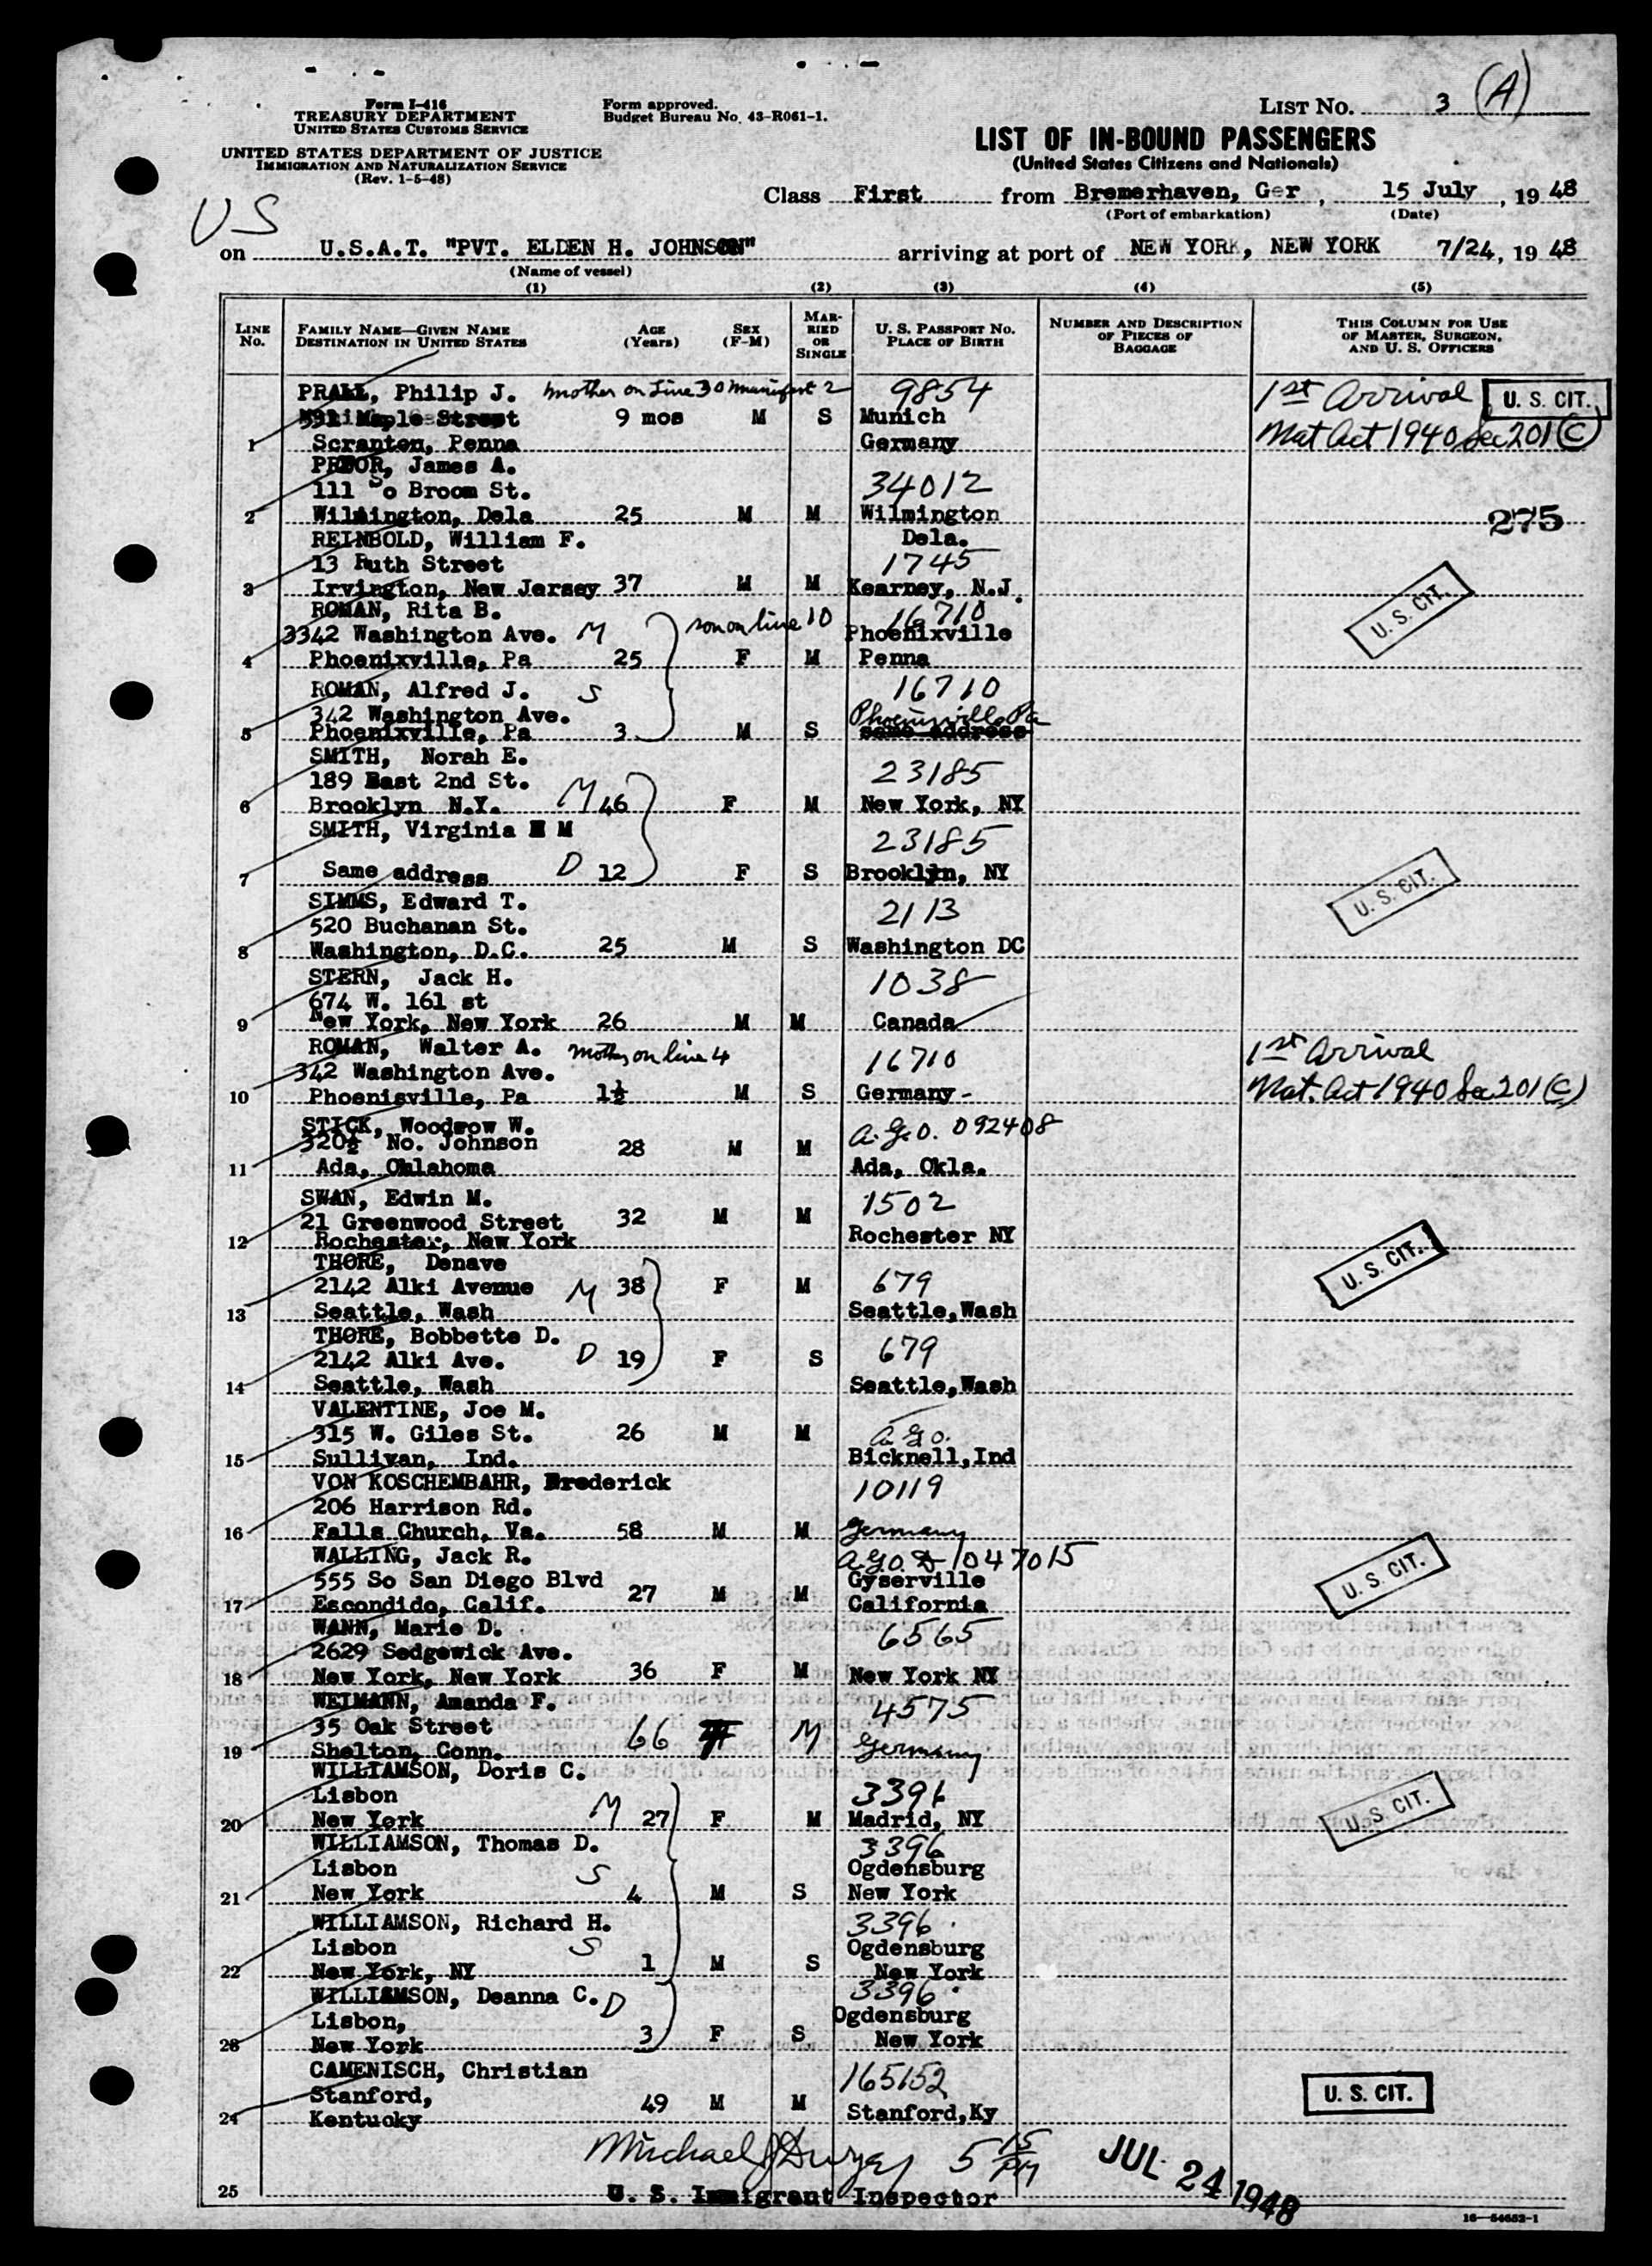 Form I-416
TREASURY DEPARTMENT
UNITED STATES CUSTOMS SERVICE
UNITED STATES DEPARTMENT OF JUSTICE
IMMIGRATION AND NATURALIZATION SERVICE
(Rev. 1-5-48)
Form approved.
Budget Bureau No. 43-R061-1.
LIST NO. 3 (A)
LIST OF IN-BOUND PASSENGERS
(United States Citizens and Nationals)
Class First from Bremerhaven, Ger, 15 July, 19 48
(Port of embarkation) (Date)
US
on U.S.A.T. "PVT. ELDEN H. JOHNSON" arriving at port of NEW YORK, NEW YORK 7/24, 19 48
(Name of vessel)
(1) (2) (3) (4) (5)
LINE NO. FAMILY NAME—GIVEN NAME DESTINATION IN UNITED STATES AGE (Years) SEX (F-M) MARRIED OR SINGLE U. S. PASSPORT NO. PLACE OF BIRTH NUMBER AND DESCRIPTION OF PIECES OF BAGGAGE THIS COLUMN FOR USE OF MASTER, SURGEON, AND U. S. OFFICERS
PRALL, Philip J. mother on Line 30 Manifest 2 9854 1st Arrival U. S. CIT.
Maple Street 9 mos M S Munich Nat Act 1940 Sec 201 (C)
1 Scranton, Penna Germany
PRYOR, James A.
111 So Broom St. 34012
2 Wilmington, Dela 25 M M Wilmington 275
REINBOLD, William F. Dela.
13 Ruth Street 1745
3 Irvington, New Jersey 37 M M Kearney, N.J. U. S. CIT.
ROMAN, Rita B. son on line 10 16710
3342 Washington Ave. M Phoenixville
4 Phoenixville, Pa 25 F M Penna
ROMAN, Alfred J. S 16710
342 Washington Ave. Phoenixville Pa
5 Phoenixville, Pa 3 M S same address
SMITH, Norah E.
189 East 2nd St. 23185
6 Brooklyn N.Y. M 46 F M New York, NY
SMITH, Virginia M 23185
7 Same address D 12 F S Brooklyn, NY U. S. CIT.
SIMMS, Edward T. 2113
520 Buchanan St.
8 Washington, D.C. 25 M S Washington DC
STERN, Jack H. 1038
674 W. 161 st
9 New York, New York 26 M M Canada
ROMAN, Walter A. Mother on line 4 16710 1st Arrival
342 Washington Ave.
10 Phoenisville, Pa 1½ M S Germany - Nat. Act 1940 Sec 201 (C)
STICK, Woodrow W. A.G.O. 092408
320½ No. Johnson 28 M M
11 Ada, Oklahoma Ada, Okla.
SWAN, Edwin M. 1502
21 Greenwood Street 32 M M
12 Rochester, New York Rochester NY U. S. CIT.
THORE, Denave
2142 Alki Avenue M 38 F M 679
13 Seattle, Wash Seattle, Wash
THORE, Bobbette D. 679
2142 Alki Ave. D 19 F S
14 Seattle, Wash Seattle, Wash
VALENTINE, Joe M.
315 W. Giles St. 26 M M A.G.O.
15 Sullivan, Ind. Bicknell, Ind
VON KOSCHEMBAHR, Frederick 10119
206 Harrison Rd.
16 Falls Church, Va. 58 M M Germany
WALLING, Jack R. A.G.O. D 1047015
555 So San Diego Blvd 27 M M Gyserville U. S. CIT.
17 Escondido, Calif. California
WANN, Marie D. 6565
2629 Sedgewick Ave.
18 New York, New York 36 F M New York NY
WEIMANN, Amanda F. 4575
35 Oak Street 66 F M
19 Shelton, Conn. Germany
WILLIAMSON, Doris C.
Lisbon 3396
20 New York M 27 F M Madrid, NY U. S. CIT.
WILLIAMSON, Thomas D. 3396
Lisbon S Ogdensburg
21 New York 4 M S New York
WILLIAMSON, Richard H. 3396
Lisbon S Ogdensburg
22 New York, NY 1 M S New York
WILLIAMSON, Deanna C. D 3396
Lisbon, Ogdensburg
23 New York 3 F S New York
CAMENISCH, Christian 165152
Stanford, 49 M M U. S. CIT.
24 Kentucky Stanford, Ky
Michael J Dwyer 5 15 PM JUL 24 1948
25 U. S. Immigrant Inspector
16—54652-1